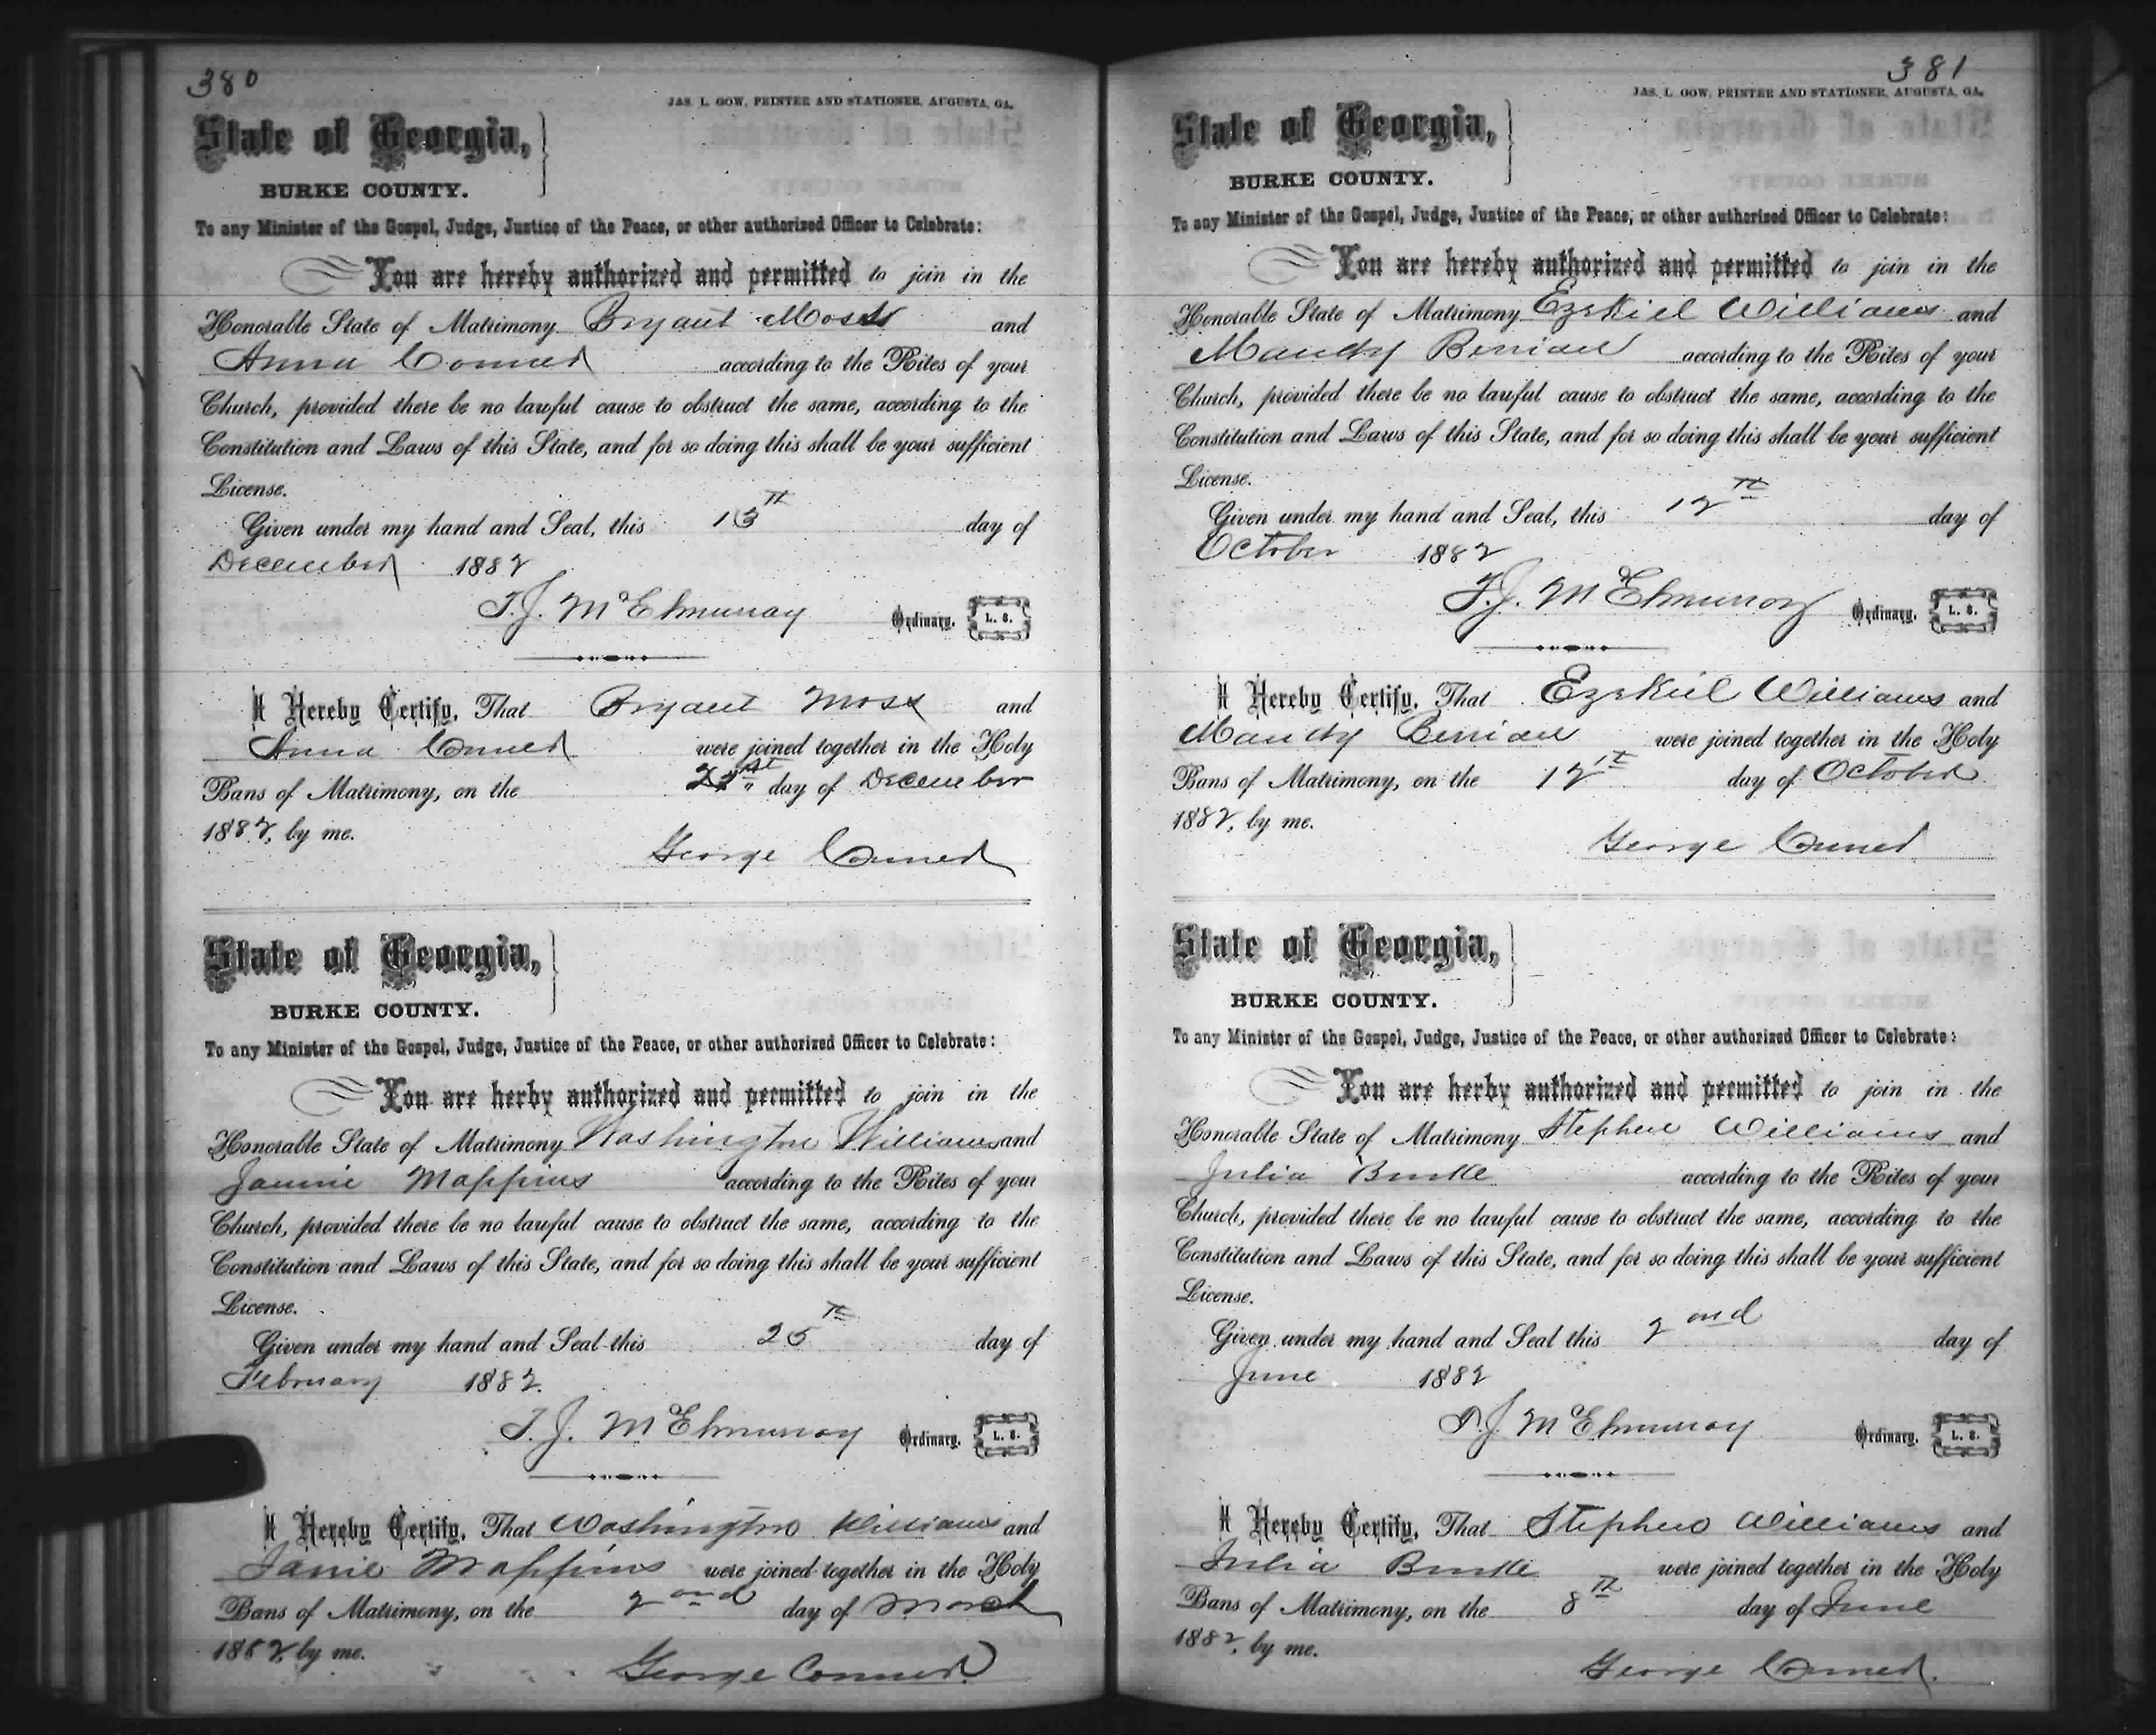 380
JAS. L. GOW, PRINTER AND STATIONER, AUGUSTA, GA.
State of Georgia,
BURKE COUNTY.
To any Minister of the Gospel, Judge, Justice of the Peace, or other authorized Officer to Celebrate:
You are hereby authorized and permitted to join in the
Honorable State of Matrimony Bryant Moss and
Anna Conner according to the Rites of your
Church, provided there be no lawful cause to obstruct the same, according to the
Constitution and Laws of this State, and for so doing this shall be your sufficient
License.
Given under my hand and Seal, this 13th day of
December 1882
T. J. McElmurray Ordinary. L. S.
I Hereby Certify, That Bryant Moss and
Anna Conner were joined together in the Holy
Bans of Matrimony, on the 21st day of December
1882, by me.
George Conner
State of Georgia,
BURKE COUNTY.
To any Minister of the Gospel, Judge, Justice of the Peace, or other authorized Officer to Celebrate:
You are herby authorized and permitted to join in the
Honorable State of Matrimony Washington Williams and
Jannie Mappins according to the Rites of your
Church, provided there be no lawful cause to obstruct the same, according to the
Constitution and Laws of this State, and for so doing this shall be your sufficient
License.
Given under my hand and Seal this 25th day of
February 1882.
T. J. McElmurray Ordinary. L. S.
I Hereby Certify, That Washington Williams and
Janie Mappins were joined together in the Holy
Bans of Matrimony, on the 2ond day of March
1882, by me.
George Conner
381
JAS. L. GOW, PRINTER AND STATIONER, AUGUSTA, GA.
State of Georgia,
BURKE COUNTY.
To any Minister of the Gospel, Judge, Justice of the Peace, or other authorized Officer to Celebrate:
You are hereby authorized and permitted to join in the
Honorable State of Matrimony Ezekiel Williams and
Mandy Berrien according to the Rites of your
Church, provided there be no lawful cause to obstruct the same, according to the
Constitution and Laws of this State, and for so doing this shall be your sufficient
License.
Given under my hand and Seal, this 12th day of
October 1882
T. J. McElmurray Ordinary. L. S.
I Hereby Certify, That Ezekiel Williams and
Mandy Berrien were joined together in the Holy
Bans of Matrimony, on the 12th day of October
1882, by me.
George Conner
State of Georgia,
BURKE COUNTY.
To any Minister of the Gospel, Judge, Justice of the Peace, or other authorized Officer to Celebrate:
You are herby authorized and permitted to join in the
Honorable State of Matrimony Stephen Williams and
Julia Burke according to the Rites of your
Church, provided there be no lawful cause to obstruct the same, according to the
Constitution and Laws of this State, and for so doing this shall be your sufficient
License.
Given under my hand and Seal this 2ond day of
June 1882
T. J. McElmurray Ordinary. L. S.
I Hereby Certify, That Stephen Williams and
Julia Burke were joined together in the Holy
Bans of Matrimony, on the 8th day of June
1882, by me.
George Conner.